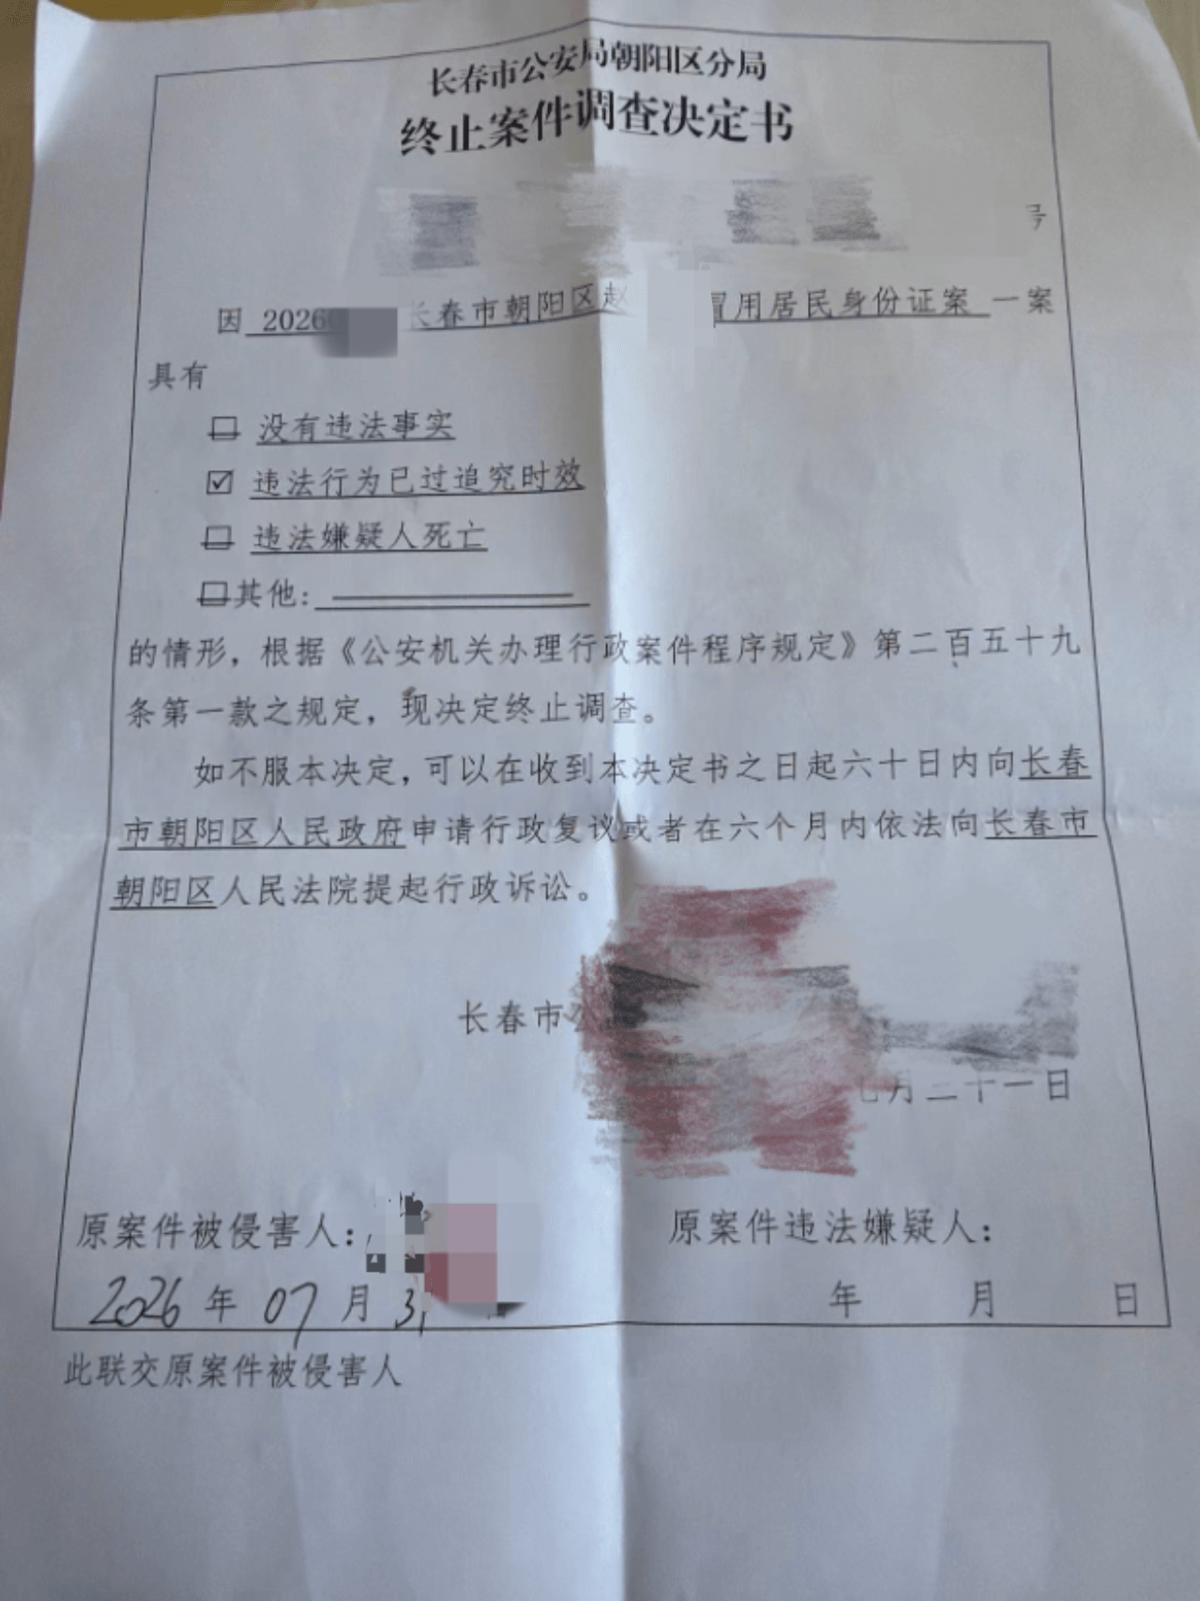 长春市公安局朝阳区分局
终止案件调查决定书
号
因 2026 长春市朝阳区赵 冒用居民身份证案 一案
具有
☐ 没有违法事实
☑ 违法行为已过追究时效
☐ 违法嫌疑人死亡
☐其他:
的情形，根据《公安机关办理行政案件程序规定》第二百五十九
条第一款之规定，现决定终止调查。
如不服本决定，可以在收到本决定书之日起六十日内向长春
市朝阳区人民政府申请行政复议或者在六个月内依法向长春市
朝阳区人民法院提起行政诉讼。
长春市公
七月二十一日
原案件被侵害人：
原案件违法嫌疑人：
2026 年 07 月 3
年 月 日
此联交原案件被侵害人